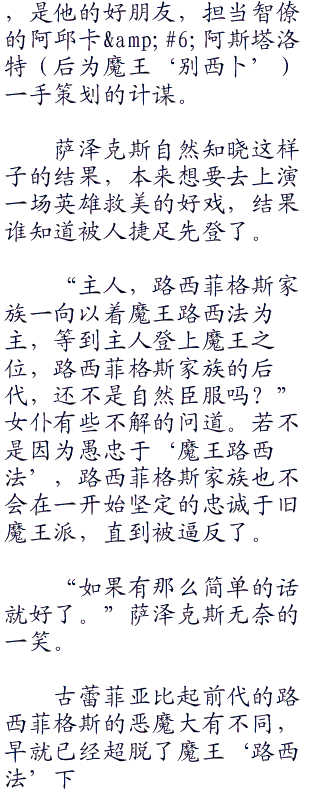 ，是他的好朋友，担当智僚
的阿邱卡&amp; #6; 阿斯塔洛
特（后为魔王‘别西卜’）
一手策划的计谋。
萨泽克斯自然知晓这样
子的结果，本来想要去上演
一场英雄救美的好戏，结果
谁知道被人捷足先登了。
“主人，路西菲格斯家
族一向以着魔王路西法为
主，等到主人登上魔王之
位，路西菲格斯家族的后
代，还不是自然臣服吗？”
女仆有些不解的问道。若不
是因为愚忠于‘魔王路西
法’，路西菲格斯家族也不
会在一开始坚定的忠诚于旧
魔王派，直到被逼反了。
“如果有那么简单的话
就好了。”萨泽克斯无奈的
一笑。
古蕾菲亚比起前代的路
西菲格斯的恶魔大有不同，
早就已经超脱了魔王‘路西
法’下